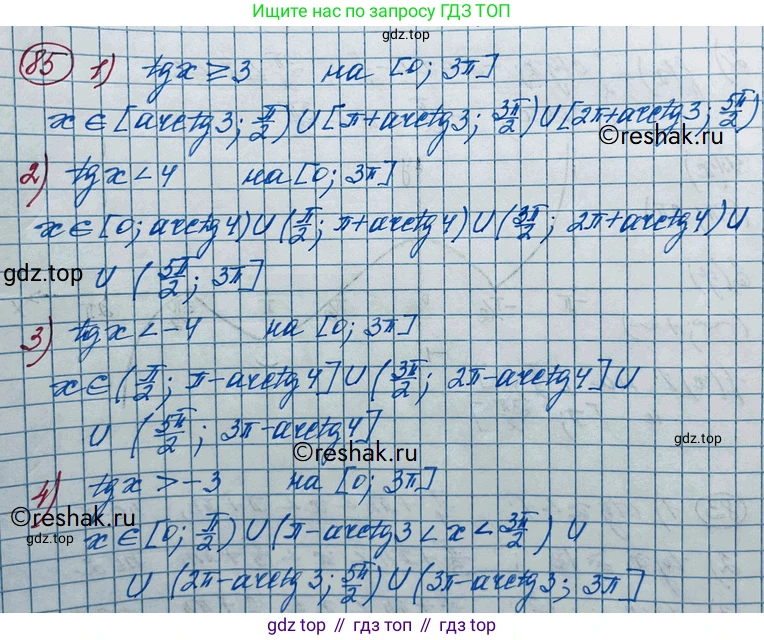 Ищите нас по запросу ГДЗ ТОП
gdz.top
85 1) tgx ≥ 3 на [0; 3π]
x ∈ [arctg3; π/2) ∪ [π+arctg3; 3π/2) ∪ [2π+arctg3; 5π/2)
©reshak.ru
2) tgx < 4 на [0; 3π]
x ∈ [0; arctg4) ∪ (π/2; π+arctg4) ∪ (3π/2; 2π+arctg4) ∪
gdz.top
∪ (5π/2; 3π]
3) tgx < -4 на [0; 3π]
x ∈ (π/2; π-arctg4] ∪ (3π/2; 2π-arctg4] ∪
∪ (5π/2; 3π-arctg4]
gdz.top
©reshak.ru
4) tgx > -3 на [0; 3π]
©reshak.ru
x ∈ [0; π/2) ∪ (π-arctg3 < x < 3π/2) ∪
gdz.top
∪ (2π-arctg3; 5π/2) ∪ (3π-arctg3; 3π]
gdz.top // гдз.топ // gdz.top // гдз.топ //
gdz.top